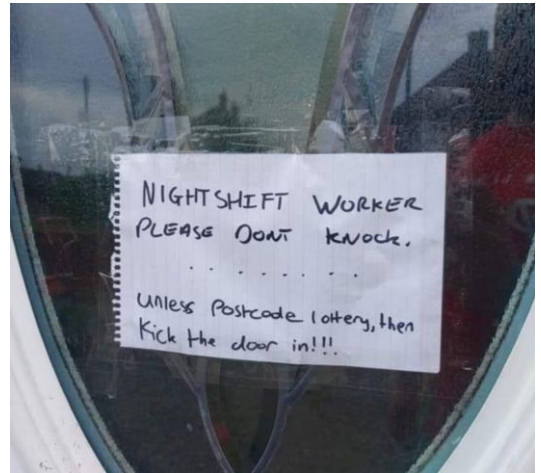 NIGHTSHIFT WORKER
PLEASE DONT KNOCK.
. . . . . . . .
Unless Postcode lottery, then
Kick the door in!!!